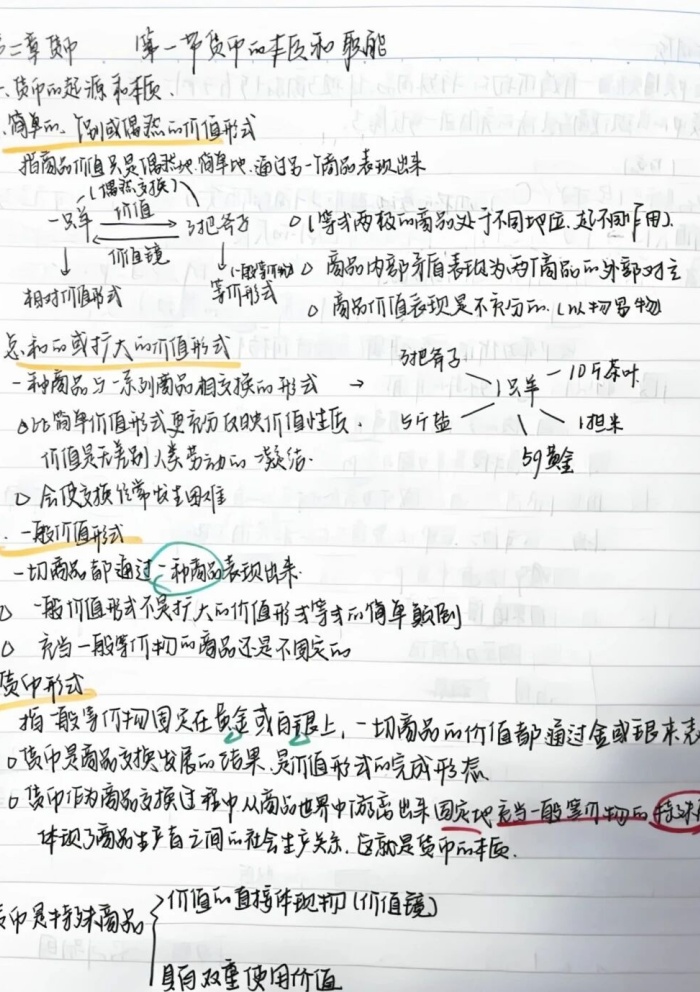 二章货币 第一节货币的本质和职能
一、货币的起源和本质.
简单的、个别或偶然的价值形式
指商品价值只是偶然地.简单地.通过另一个商品表现出来
(偶然交换)
价值
一只羊 3把斧子 (等式两极的商品处于不同地位.起不同作用).
价值镜
(一般等价物) 商品内部矛盾表现为两个商品的外部对立
相对价值形式 等价形式
商品价值表现是不充分的.(以物易物)
总和的或扩大的价值形式
3把斧子
一种商品与一系列商品相交换的形式 → 1只羊 10斤茶叶
比简单价值形式更充分反映价值性质. 5斤盐 1担米
价值是无差别人类劳动的凝结. 5g黄金
会使交换经常发生困难
一般价值形式
一切商品都通过一种商品表现出来.
一般价值形式不是扩大的价值形式等式的简单颠倒
充当一般等价物的商品还是不固定的
货币形式
指一般等价物固定在黄金或白银上,一切商品的价值都通过金或银来表
货币是商品交换发展的结果.是价值形式的完成形态
货币作为商品交换过程中从商品世界中游离出来固定地充当一般等价物的特殊
体现了商品生产者之间的社会生产关系.这就是货币的本质.
价值的直接体现物(价值镜)
货币是特殊商品
具有双重使用价值